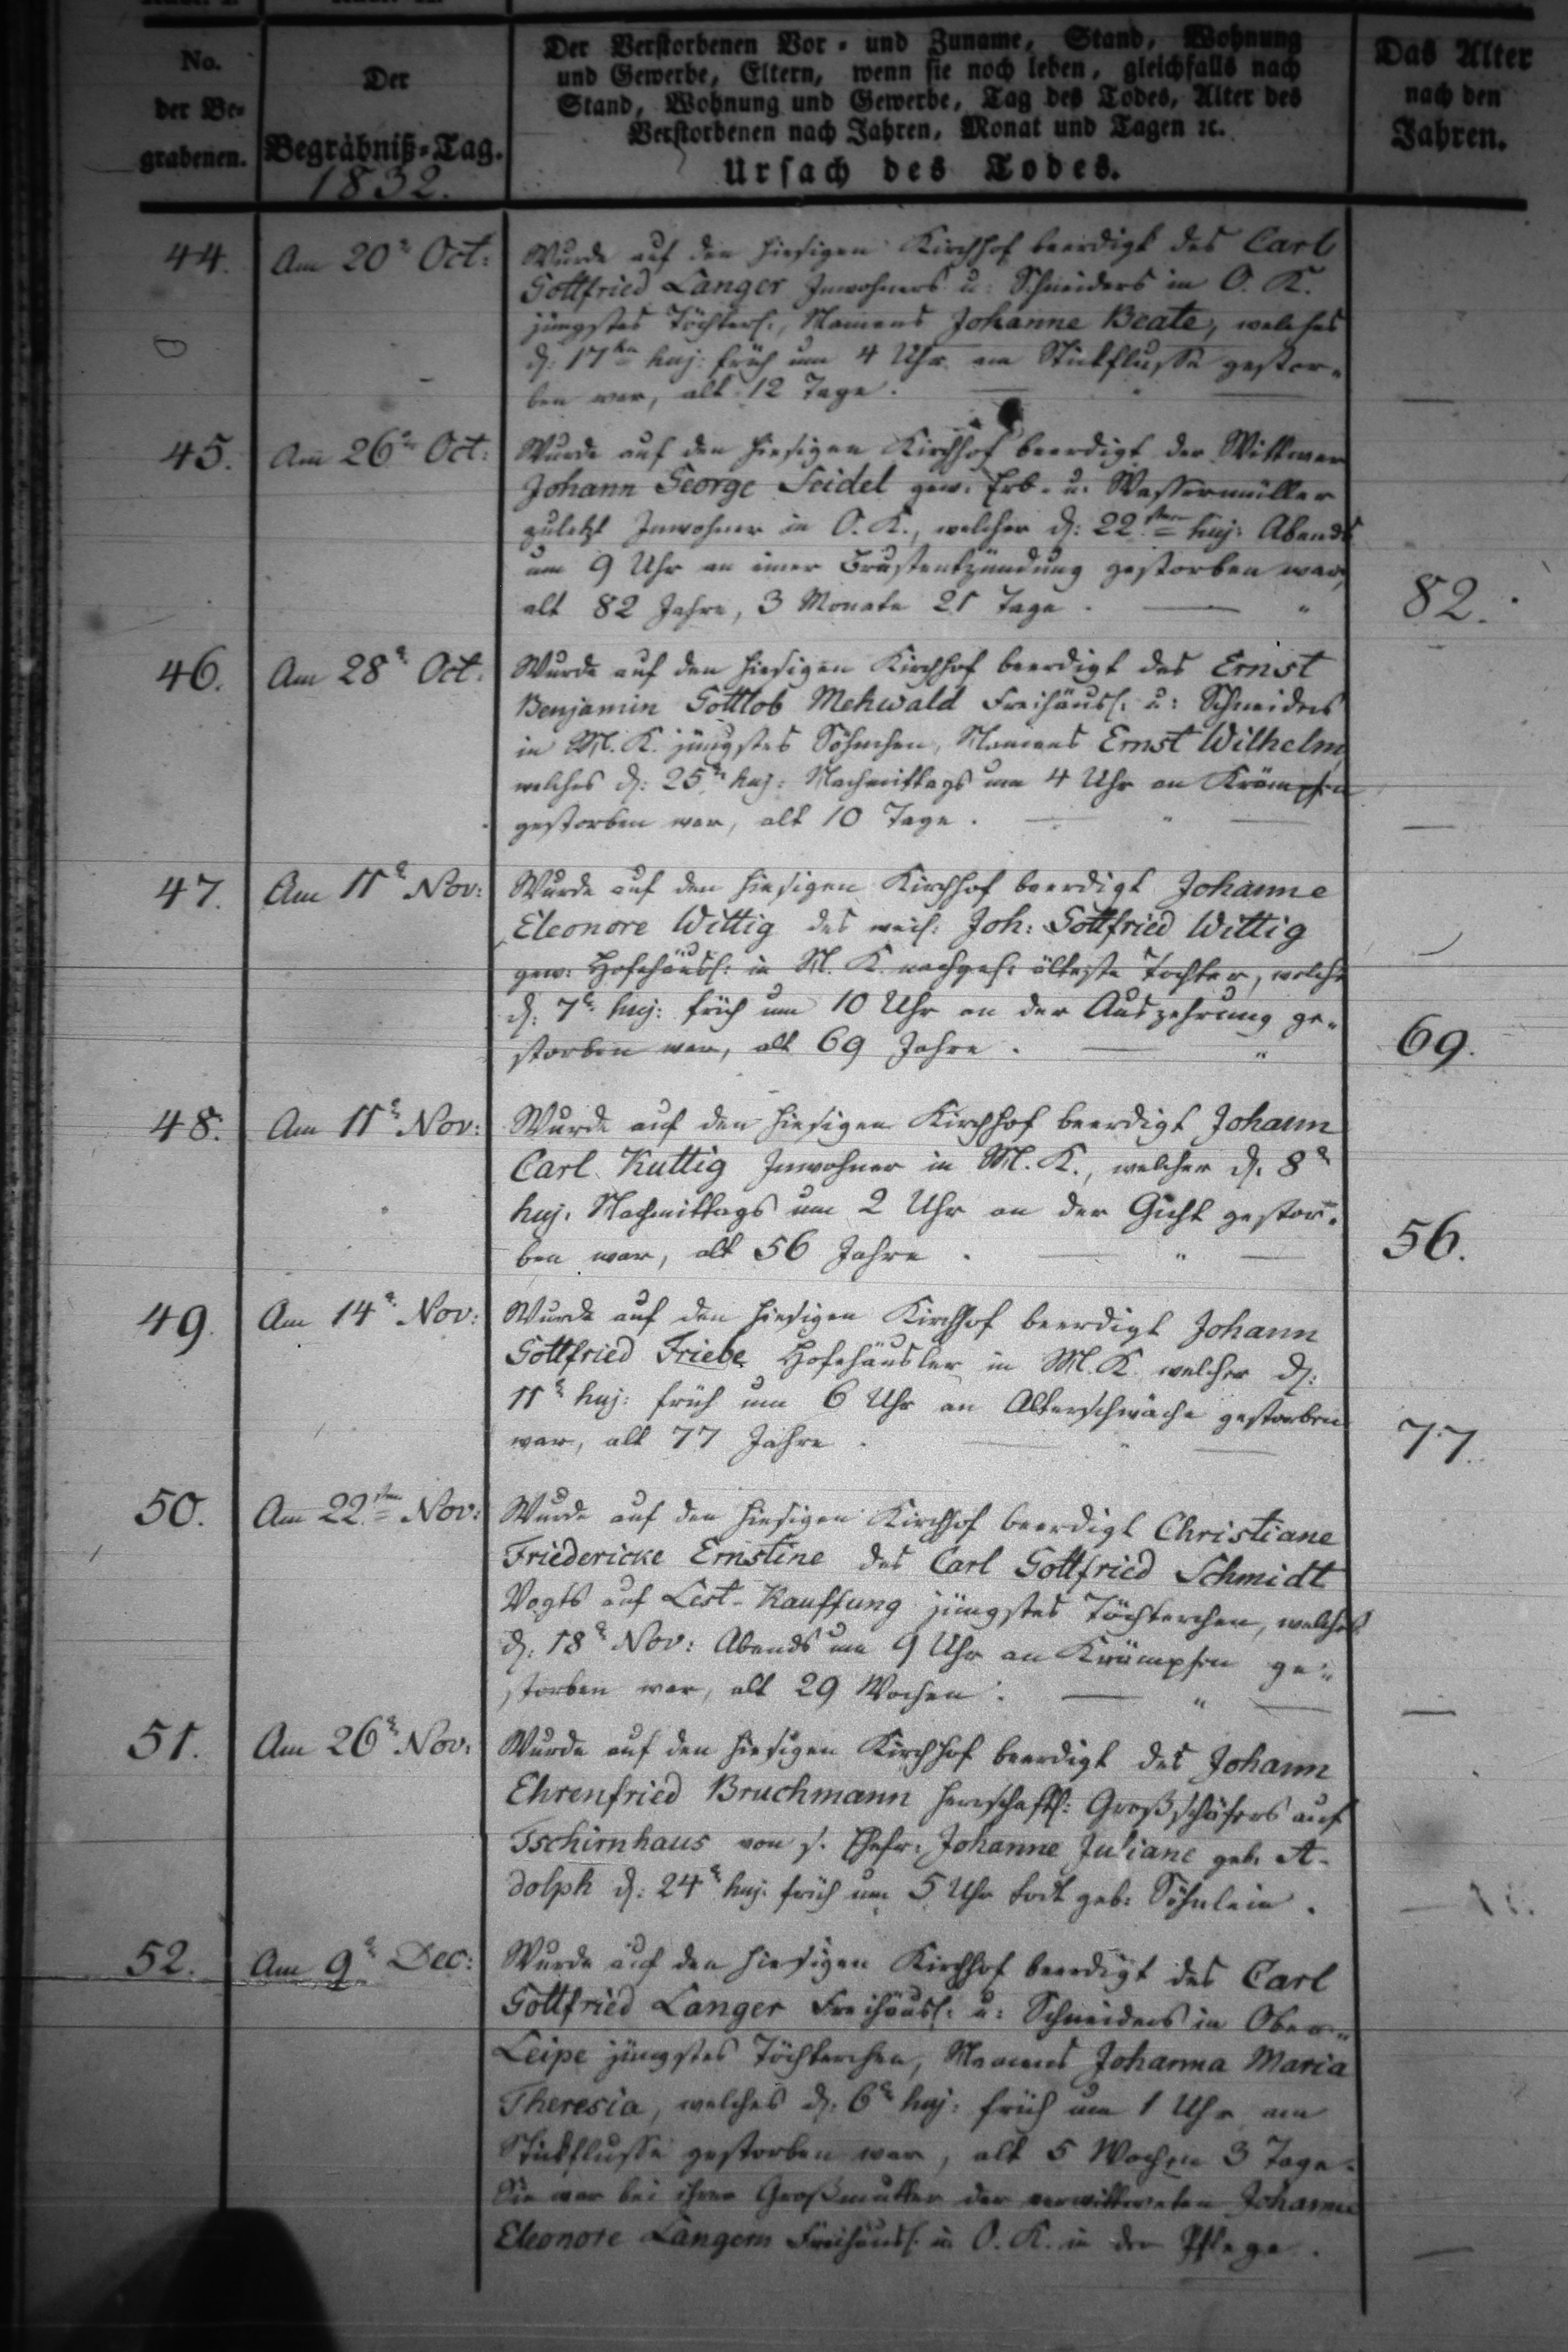 No.
der Be-
grabenen.
Der
Begräbniß-Tag.
1832.
Der Verstorbenen Vor- und Zuname, Stand, Wohnung
und Gewerbe, Eltern, wenn sie noch leben, gleichfalls nach
Stand, Wohnung und Gewerbe, Tag des Todes, Alter des
Verstorbenen nach Jahren, Monat und Tagen ꝛc.
Ursach des Todes.
Das Alter
nach den
Jahren.
44.
Am 20n Oct:
Wurde auf den hiesigen Kirchhof beerdigt des Carl
Gottfried Langer Inwohners u: Schneiders in O. K.
jüngstes Töchterl:, Namens Johanne Beate, welches
d: 17ten huj: früh um 4 Uhr am Stickflusse gestor-
ben war, alt 12 Tage.
45.
Am 26n Oct:
Wurde auf den hiesigen Kirchhof beerdigt der Wittwer
Johann George Seidel gew. Erb- u. Wassermüller
zuletzt Inwohner in O. K., welcher d: 22sten huj: Abends
um 9 Uhr an einer Brustentzündung gestorben war,
alt 82 Jahre, 3 Monate 21 Tage.
82.
46.
Am 28n Oct.
Wurde auf den hiesigen Kirchhof beerdigt des Ernst
Benjamin Gottlob Mehwald Freihäusl. u: Schneiders
in M. K. jüngstes Söhnchen, Namens Ernst Wilhelm,
welches d: 25n huj: Nachmittags um 4 Uhr an Krämpfen
gestorben war, alt 10 Tage.
47.
Am 11n Nov:
Wurde auf den hiesigen Kirchhof beerdigt Johanne
Eleonore Wittig des weil: Joh: Gottfried Wittig
gew: Hofehäusl: in M. K. nachgel: älteste Tochter, welche
d: 7n huj: früh um 10 Uhr an der Auszehrung ge-
storben war, alt 69 Jahre.
69.
48.
Am 11n Nov:
Wurde auf den hiesigen Kirchhof beerdigt Johann
Carl Kuttig Inwohner in M. K., welcher d: 8n
huj. Nachmittags um 2 Uhr an der Gicht gestor-
ben war, alt 56 Jahre.
56.
49.
Am 14n Nov:
Wurde auf den hiesigen Kirchhof beerdigt Johann
Gottfried Friebe Hofehäusler in M. K. welcher d:
11n huj: früh um 6 Uhr an Alterschwäche gestorben
war, alt 77 Jahre.
77.
50.
Am 22sten Nov:
Wurde auf den hiesigen Kirchhof beerdigt Christiane
Friedericke Ernstine des Carl Gottfried Schmidt
Vogts auf Lest-Kauffung jüngstes Töchterchen, welches
d: 18n Nov: Abends um 9 Uhr an Krämpfen ge-
storben war, alt 29 Wochen.
51.
Am 26n Nov:
Wurde auf den hiesigen Kirchhof beerdigt des Johann
Ehrenfried Bruchmann herrschaftl: Großschäfers auf
Tschirnhaus von s. Ehefr: Johanne Juliane geb. A-
dolph d: 24n huj: früh um 5 Uhr todt geb: Söhnlein.
52.
Am 9n Dec:
Wurde auf den hiesigen Kirchhof beerdigt des Carl
Gottfried Langer Freihäusl: u: Schneiders in Ober-
Leipe jüngstes Töchterchen, Namens Johanna Maria
Theresia, welches d: 6n huj: früh um 1 Uhr am
Stickflusse gestorben war, alt 5 Wochen 3 Tage.
Sie war bei ihrer Großmutter der verwittweten Johanne
Eleonore Langern Freihäusl. in O. K. in der Pflege.